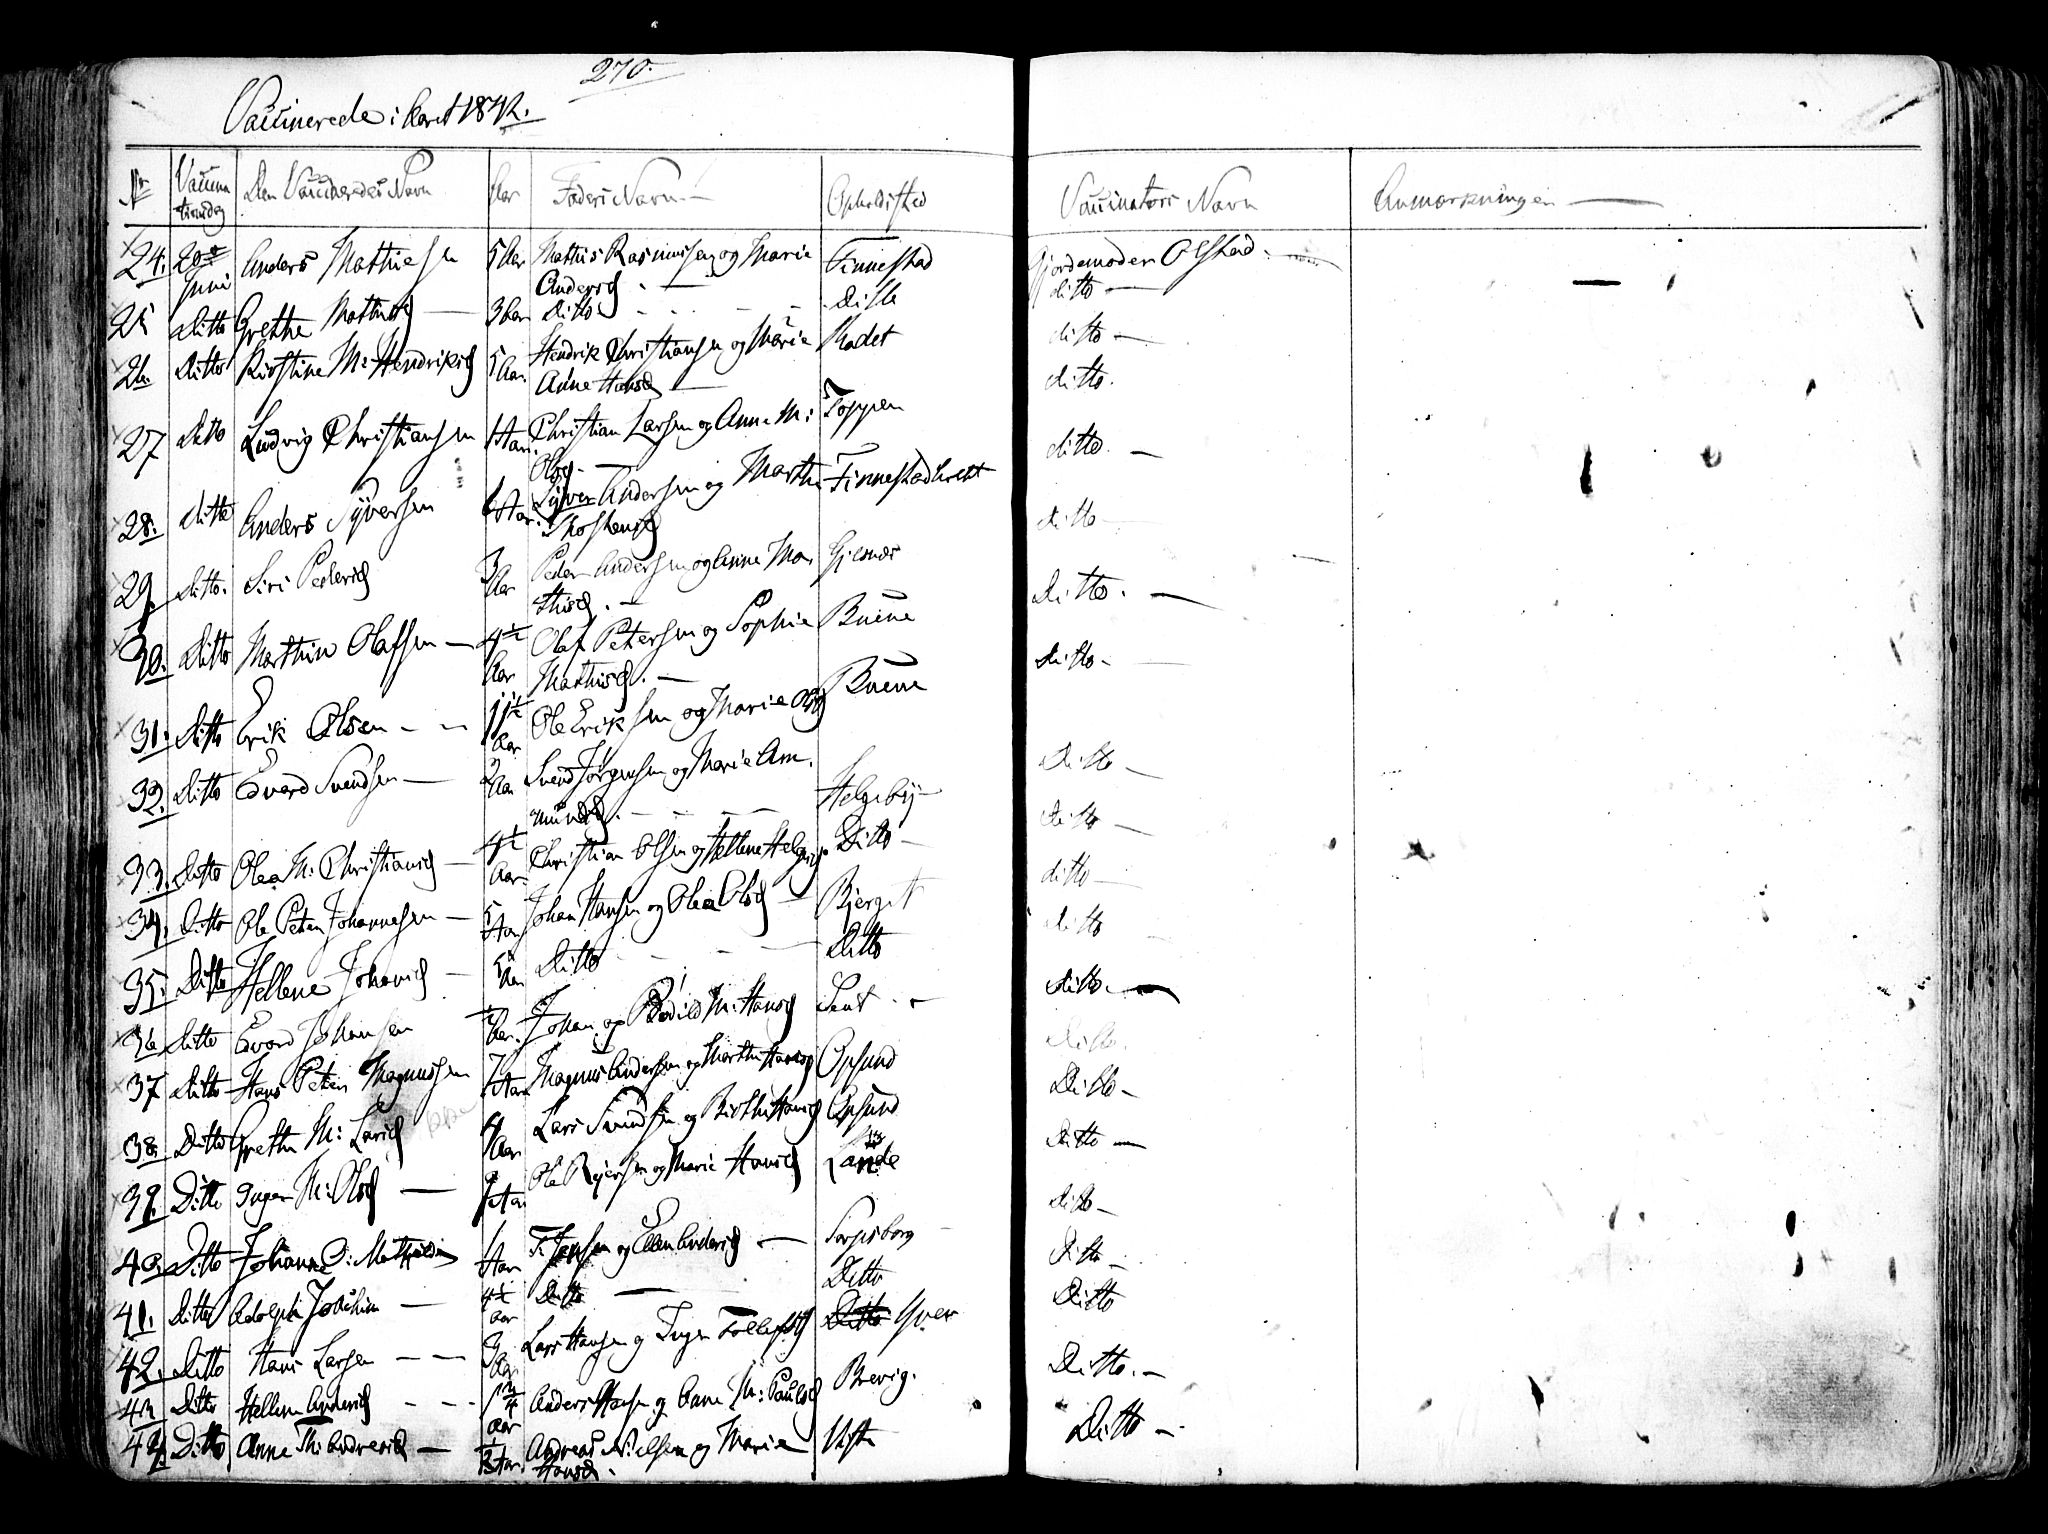 270.
Vaccinerede i Aaret 1842.
Nr Vaccinationsdag Den Vaccineredes Navn Aar Faders Navn Opholdsted Vaccinators Navn Anmærkninger
24. 20de Juni Anders Mathiesen 5 Aar Mathis Rasmussen og Marie Finnestad Gjordemoder Olstad
Andersd. ditto
25 Ditto Grethe Mathisd 3 Aar Ditto Ditto ditto
26. Ditto Kirstine M: Hendriksd 5 Aar Hendrik Christiansen og Marie Rodet ditto.
Anne Hansd
27 Ditto Ludvig Christiansen 1 Aar. Christian Larsen og Anne M: Toppen ditto.
Olsd.
28. Ditto Anders Syversen Aar. Syver Andersen og Marthe Finnestad Ditto
Thostensd
29. Ditto. Siri Pedersd 3 Aar Peder Andersen og Anne Ma Gjesnæs Ditto.
thisd.
30. Ditto Marthin Olafsen 4½ Aar Olaf Petersen og Sophie Buene Ditto
Mathisd.
31. Ditto Erik Olsen 11½ Aar Ole Eriksen og Marie Olsd Buene Ditto
32. Ditto Edvard Svendsen 2 Aar Svend Jørgensen og Marie Am Helgeby Ditto
mundsd.
33. Ditto Olea M: Christiansd 4½ Aar. Christian Olsen og Hellene Helgesd. Ditto ditto
34. Ditto Ole Peter Johannesen 5 Aar Johan Hansen og Olea Olsd Bjerget Ditto
35. Ditto Hellene Johansd 5 Aar Ditto Ditto ditto.
36 Ditto Edvard Johansen Aar. Johan og Bodild M: Hansd Ditto.
37 Ditto Hans Peter Magnussen 7 Aar Magnus Andersen og Marthe Hansd Opsund Ditto
38. Ditto Grethe M: Larsd 4 Aar Lars Svendsen og Berthe Hansd Opsund Ditto
39. Ditto Inger M: Olsd Aar. Ole Rejersen og Marie Hansd Lande Ditto
40. Ditto Johanne C: Mathilde 1 Aar F. Jensen og Ellen Andersd Sarpsborg Ditto
41. Ditto Adolph Jochim 4½ Aar Ditto Ditto Ditto
42. Ditto Hans Larsen 3 Aar Lars Hansen og Inger Tollefsd Ditto Yven Ditto.
43 Ditto Hellene Andersd 1¾ Aar Anders Hansen og Anne M: Paulsd Brevig. Ditto
44. Ditto Anne Th: Andreasd ½ Aar. Andreas Nielsen og Marie Viste
Hansd.